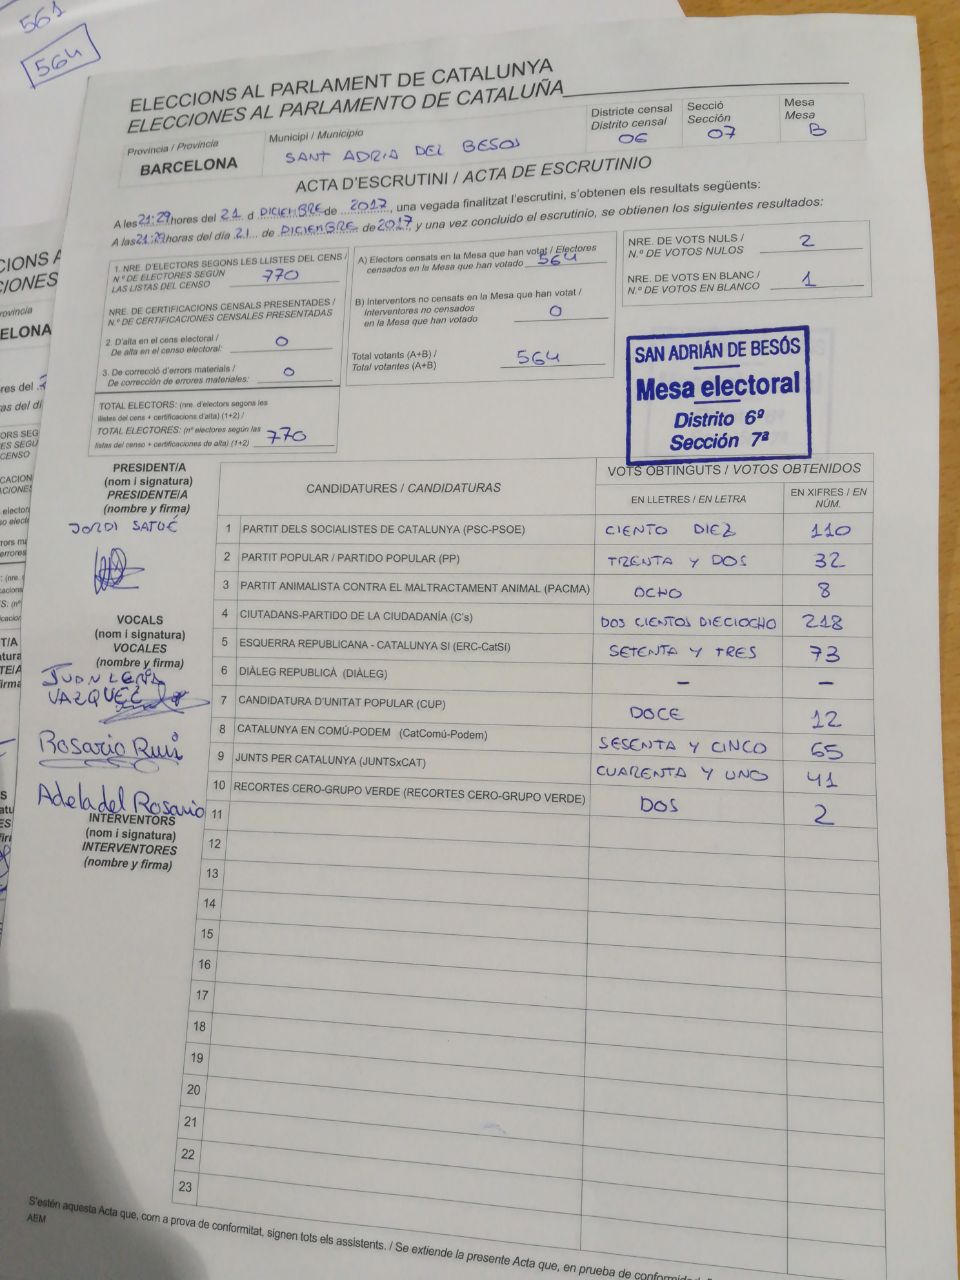 561
564
ELECCIONS AL PARLAMENT DE CATALUNYA
ELECCIONES AL PARLAMENTO DE CATALUÑA
Província / Provincia
BARCELONA
Municipi / Municipio
SANT ADRIA DEL BESOS
Districte censal
Distrito censal
06
Secció
Sección
07
Mesa
Mesa
B
ACTA D'ESCRUTINI / ACTA DE ESCRUTINIO
A les 21:29 hores del 21 d DICIEMBRE de 2017, una vegada finalitzat l'escrutini, s'obtenen els resultats següents:
A las 21:29 horas del día 21 de DICIEMBRE de 2017 y una vez concluido el escrutinio, se obtienen los siguientes resultados:
1. NRE. D'ELECTORS SEGONS LES LLISTES DEL CENS /
N.º DE ELECTORES SEGÚN
LAS LISTAS DEL CENSO
770
NRE. DE CERTIFICACIONS CENSALS PRESENTADES /
N.º DE CERTIFICACIONES CENSALES PRESENTADAS
2. D'alta en el cens electoral /
De alta en el censo electoral:
0
3. De correcció d'errors materials /
De corrección de errores materiales:
0
TOTAL ELECTORS: (nre. d'electors segons les
llistes del cens + certificacions d'alta) (1+2) /
TOTAL ELECTORES: (nº electores según las
listas del censo + certificaciones de alta) (1+2)
770
A) Electors censats en la Mesa que han votat / Electores
censados en la Mesa que han votado
564
B) Interventors no censats en la Mesa que han votat /
Interventores no censados
en la Mesa que han votado
0
Total votants (A+B) /
Total votantes (A+B)
564
NRE. DE VOTS NULS /
N.º DE VOTOS NULOS
2
NRE. DE VOTS EN BLANC /
N.º DE VOTOS EN BLANCO
1
SAN ADRIÁN DE BESÓS
Mesa electoral
Distrito 6º
Sección 7ª
PRESIDENT/A
(nom i signatura)
PRESIDENTE/A
(nombre y firma)
JORDI SATUÉ
VOCALS
(nom i signatura)
VOCALES
(nombre y firma)
VAZQUEZ
Rosario Ruiz
Adela del Rosario
INTERVENTORS
(nom i signatura)
INTERVENTORES
(nombre y firma)
CANDIDATURES / CANDIDATURAS
VOTS OBTINGUTS / VOTOS OBTENIDOS
EN LLETRES / EN LETRA
EN XIFRES / EN NÚM.
1 PARTIT DELS SOCIALISTES DE CATALUNYA (PSC-PSOE) CIENTO DIEZ 110
2 PARTIT POPULAR / PARTIDO POPULAR (PP) TRENTA Y DOS 32
3 PARTIT ANIMALISTA CONTRA EL MALTRACTAMENT ANIMAL (PACMA) OCHO 8
4 CIUTADANS-PARTIDO DE LA CIUDADANÍA (C's) DOS CIENTOS DIECIOCHO 218
5 ESQUERRA REPUBLICANA - CATALUNYA SI (ERC-CatSí) SETENTA Y TRES 73
6 DIÀLEG REPUBLICÀ (DIÀLEG) - -
7 CANDIDATURA D'UNITAT POPULAR (CUP) DOCE 12
8 CATALUNYA EN COMÚ-PODEM (CatComú-Podem) SESENTA Y CINCO 65
9 JUNTS PER CATALUNYA (JUNTSxCAT) CUARENTA Y UNO 41
10 RECORTES CERO-GRUPO VERDE (RECORTES CERO-GRUPO VERDE) DOS 2
11
12
13
14
15
16
17
18
19
20
21
22
23
S'estén aquesta Acta que, com a prova de conformitat, signen tots els assistents. / Se extiende la presente Acta que, en prueba de conformidad,
AEM